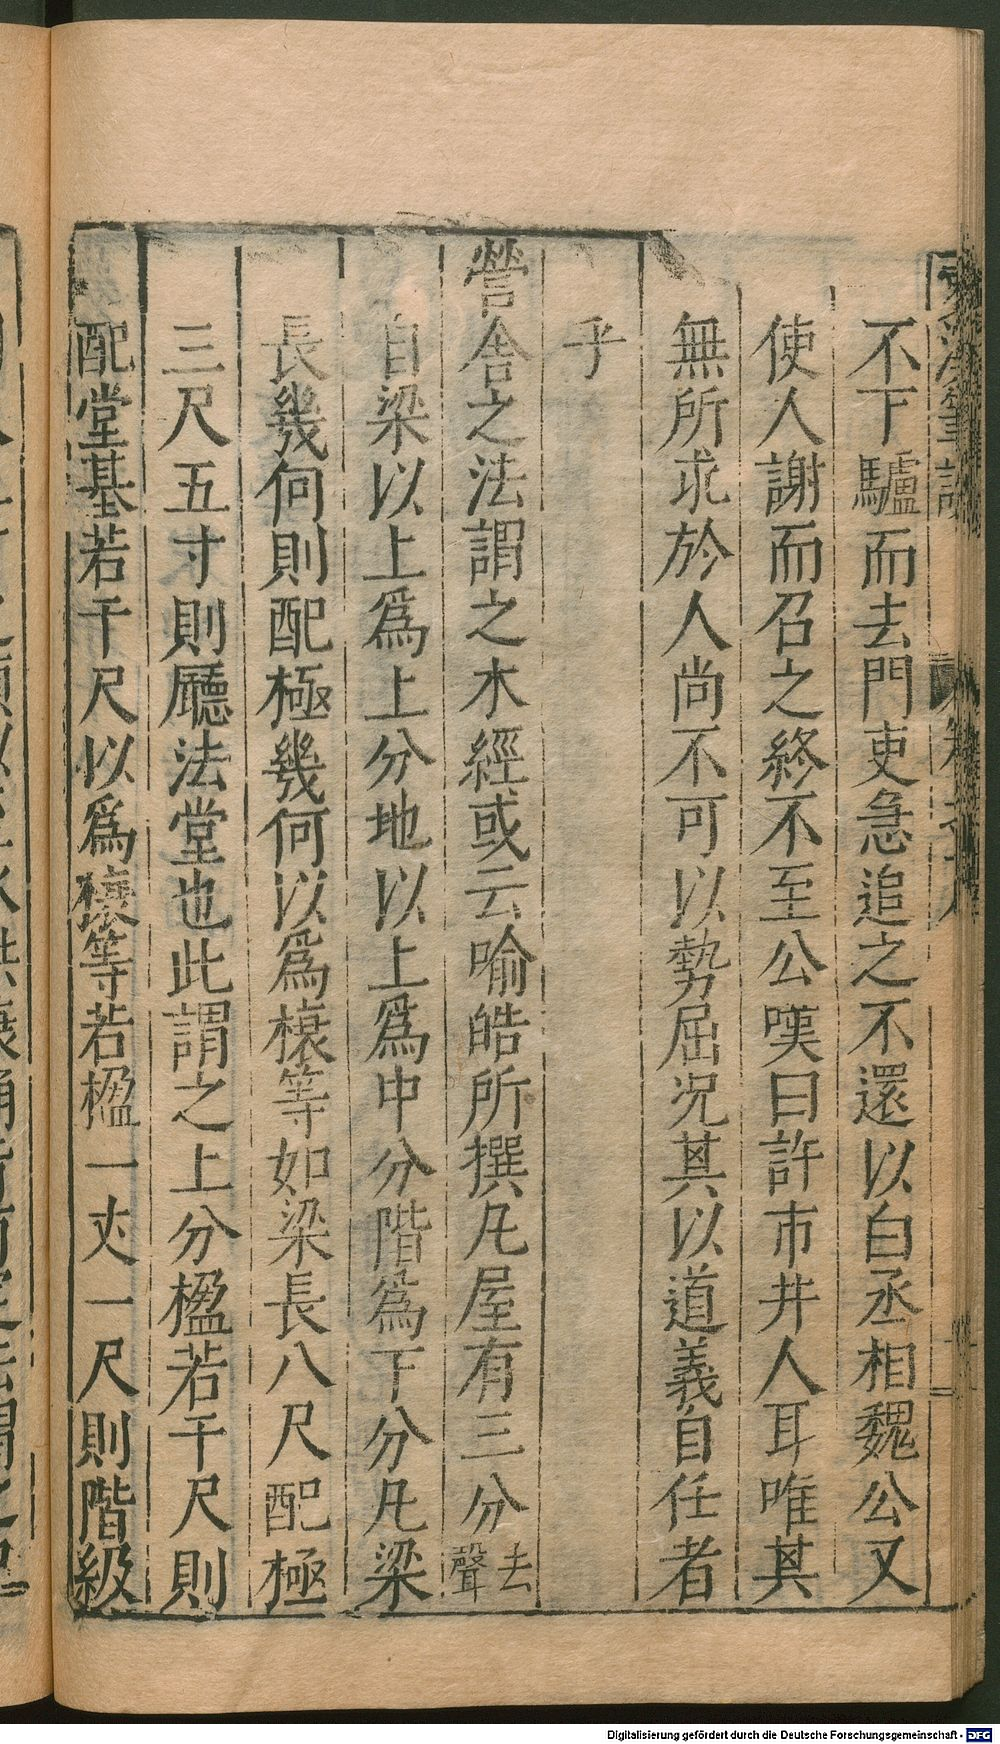 不下驢而去門吏急追之不還以白丞相魏公又
使人謝而召之終不至公嘆曰許市井人耳唯其
無所求於人尚不可以勢屈况其以道義自任者
乎
營舍之法謂之木經或云喻皓所撰凡屋有三分去聲
自梁以上爲上分地以上爲中分階爲下分凡梁
長幾何則配極幾何以爲榱等如梁長八尺配極
三尺五寸則廳法堂也此謂之上分楹若干尺則
配堂基若干尺以爲榱等若楹一丈一尺則階級
Digitalisierung gefördert durch die Deutsche Forschungsgemeinschaft - DFG